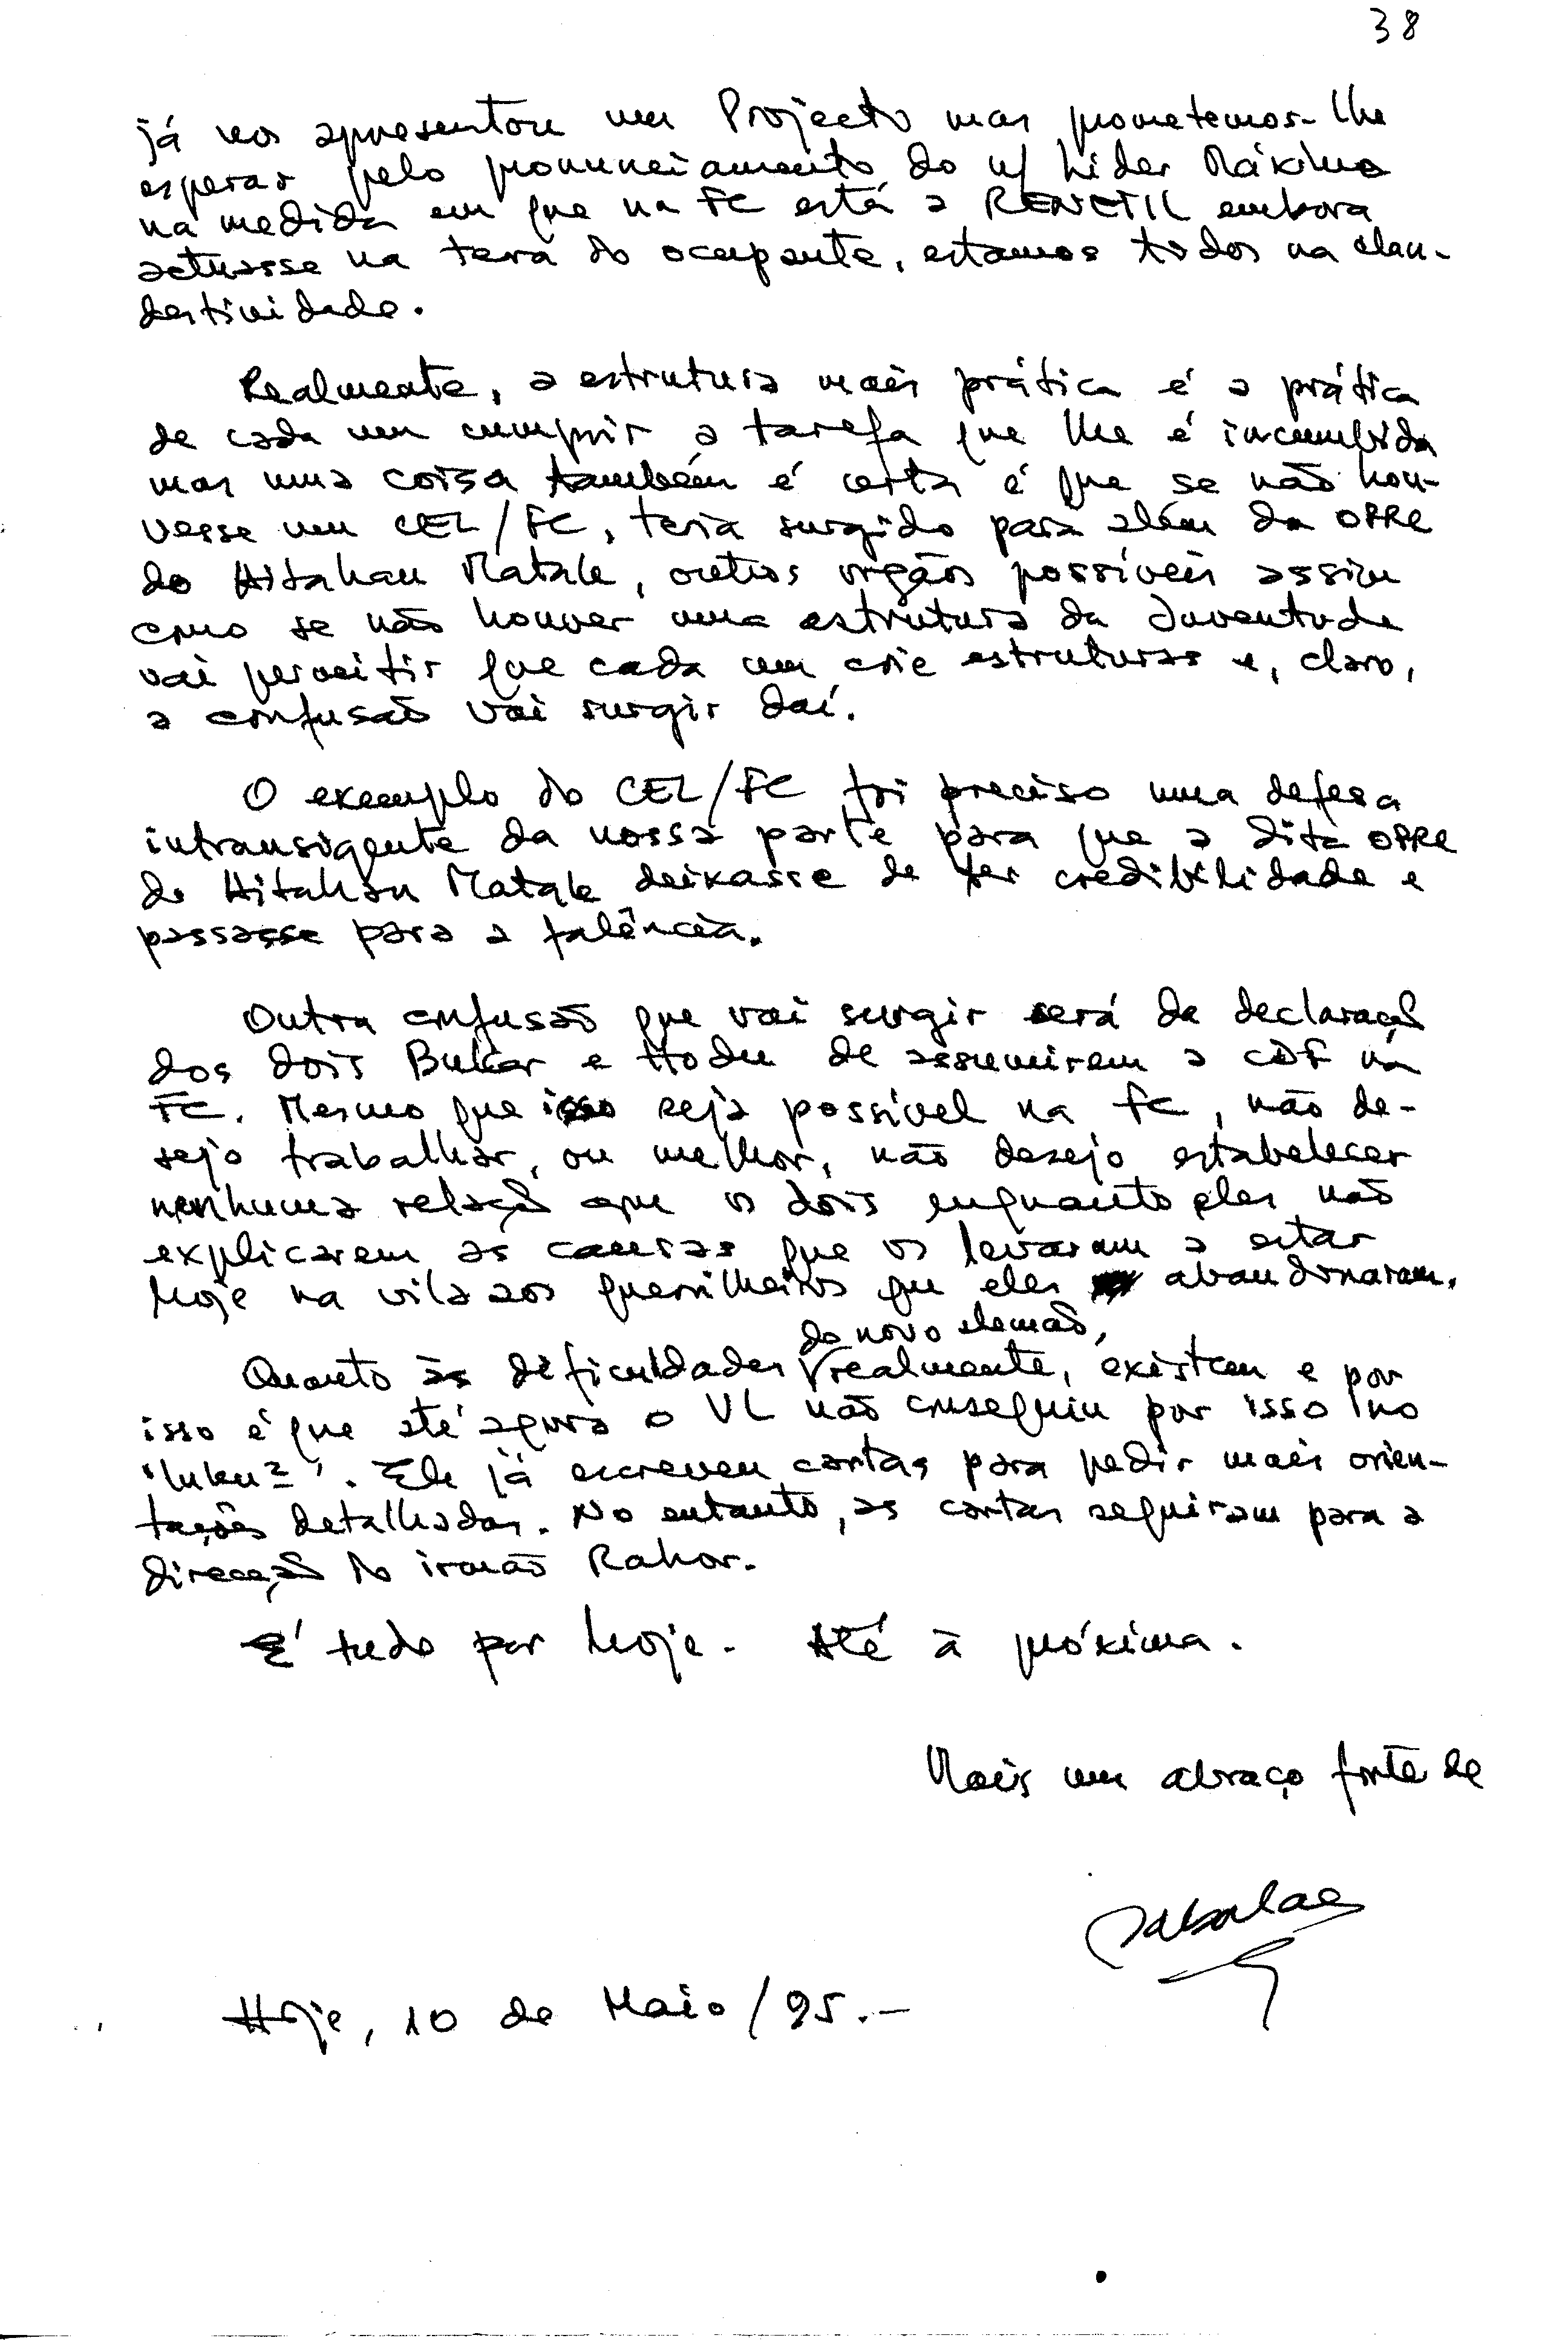 38
já nos apresentou um Projecto mas prometemos-lhe
esperar pelo pronunciamento do n/ Líder Máximo
na medida em que na FC está a RENETIL embora
actuasse na terra do ocupante, estamos todos na clan-
destinidade.
Realmente, a estrutura mais prática é a prática
de cada um cumprir a tarefa que lhe é incumbida
mas uma coisa também é certa é que se não hou-
vesse um CEL/FC, teria surgido para além da OPRE
do Hitahan Matak, outros orgãos possíveis assim
como se não houver uma estrutura da Juventude
vai permitir que cada um crie estruturas e, claro,
a confusão vai surgir daí.
O exemplo do CEL/FC foi preciso uma defesa
intransigente da nossa parte para que a dita OPRE
do Hitahan Matak deixasse de ter credibilidade e
passasse para a falência.
Outra confusão que vai surgir será da declaração
dos dois Bukar e Hodu de assumirem a CDF na
FC. Mesmo que isso seja possível na FC, não de-
sejo trabalhar, ou melhor, não desejo estabelecer
nenhuma relação com os dois enquanto eles não
explicarem as causas que os levaram a estar
hoje na vila aos guerrilheiros que eles abandonaram.
do novo alemão,
Quanto às dificuldades realmente, existem e por
isso é que até agora o VL não conseguiu por isso no
"luku2". Ele já escreveu cartas para pedir mais orien-
tações detalhadas. No entanto, as cartas seguiram para a
direcção do irmão Rahor.
É tudo por hoje. Até à próxima.
Mais um abraço forte de
Sabalae
Hoje, 10 de Maio/95.-